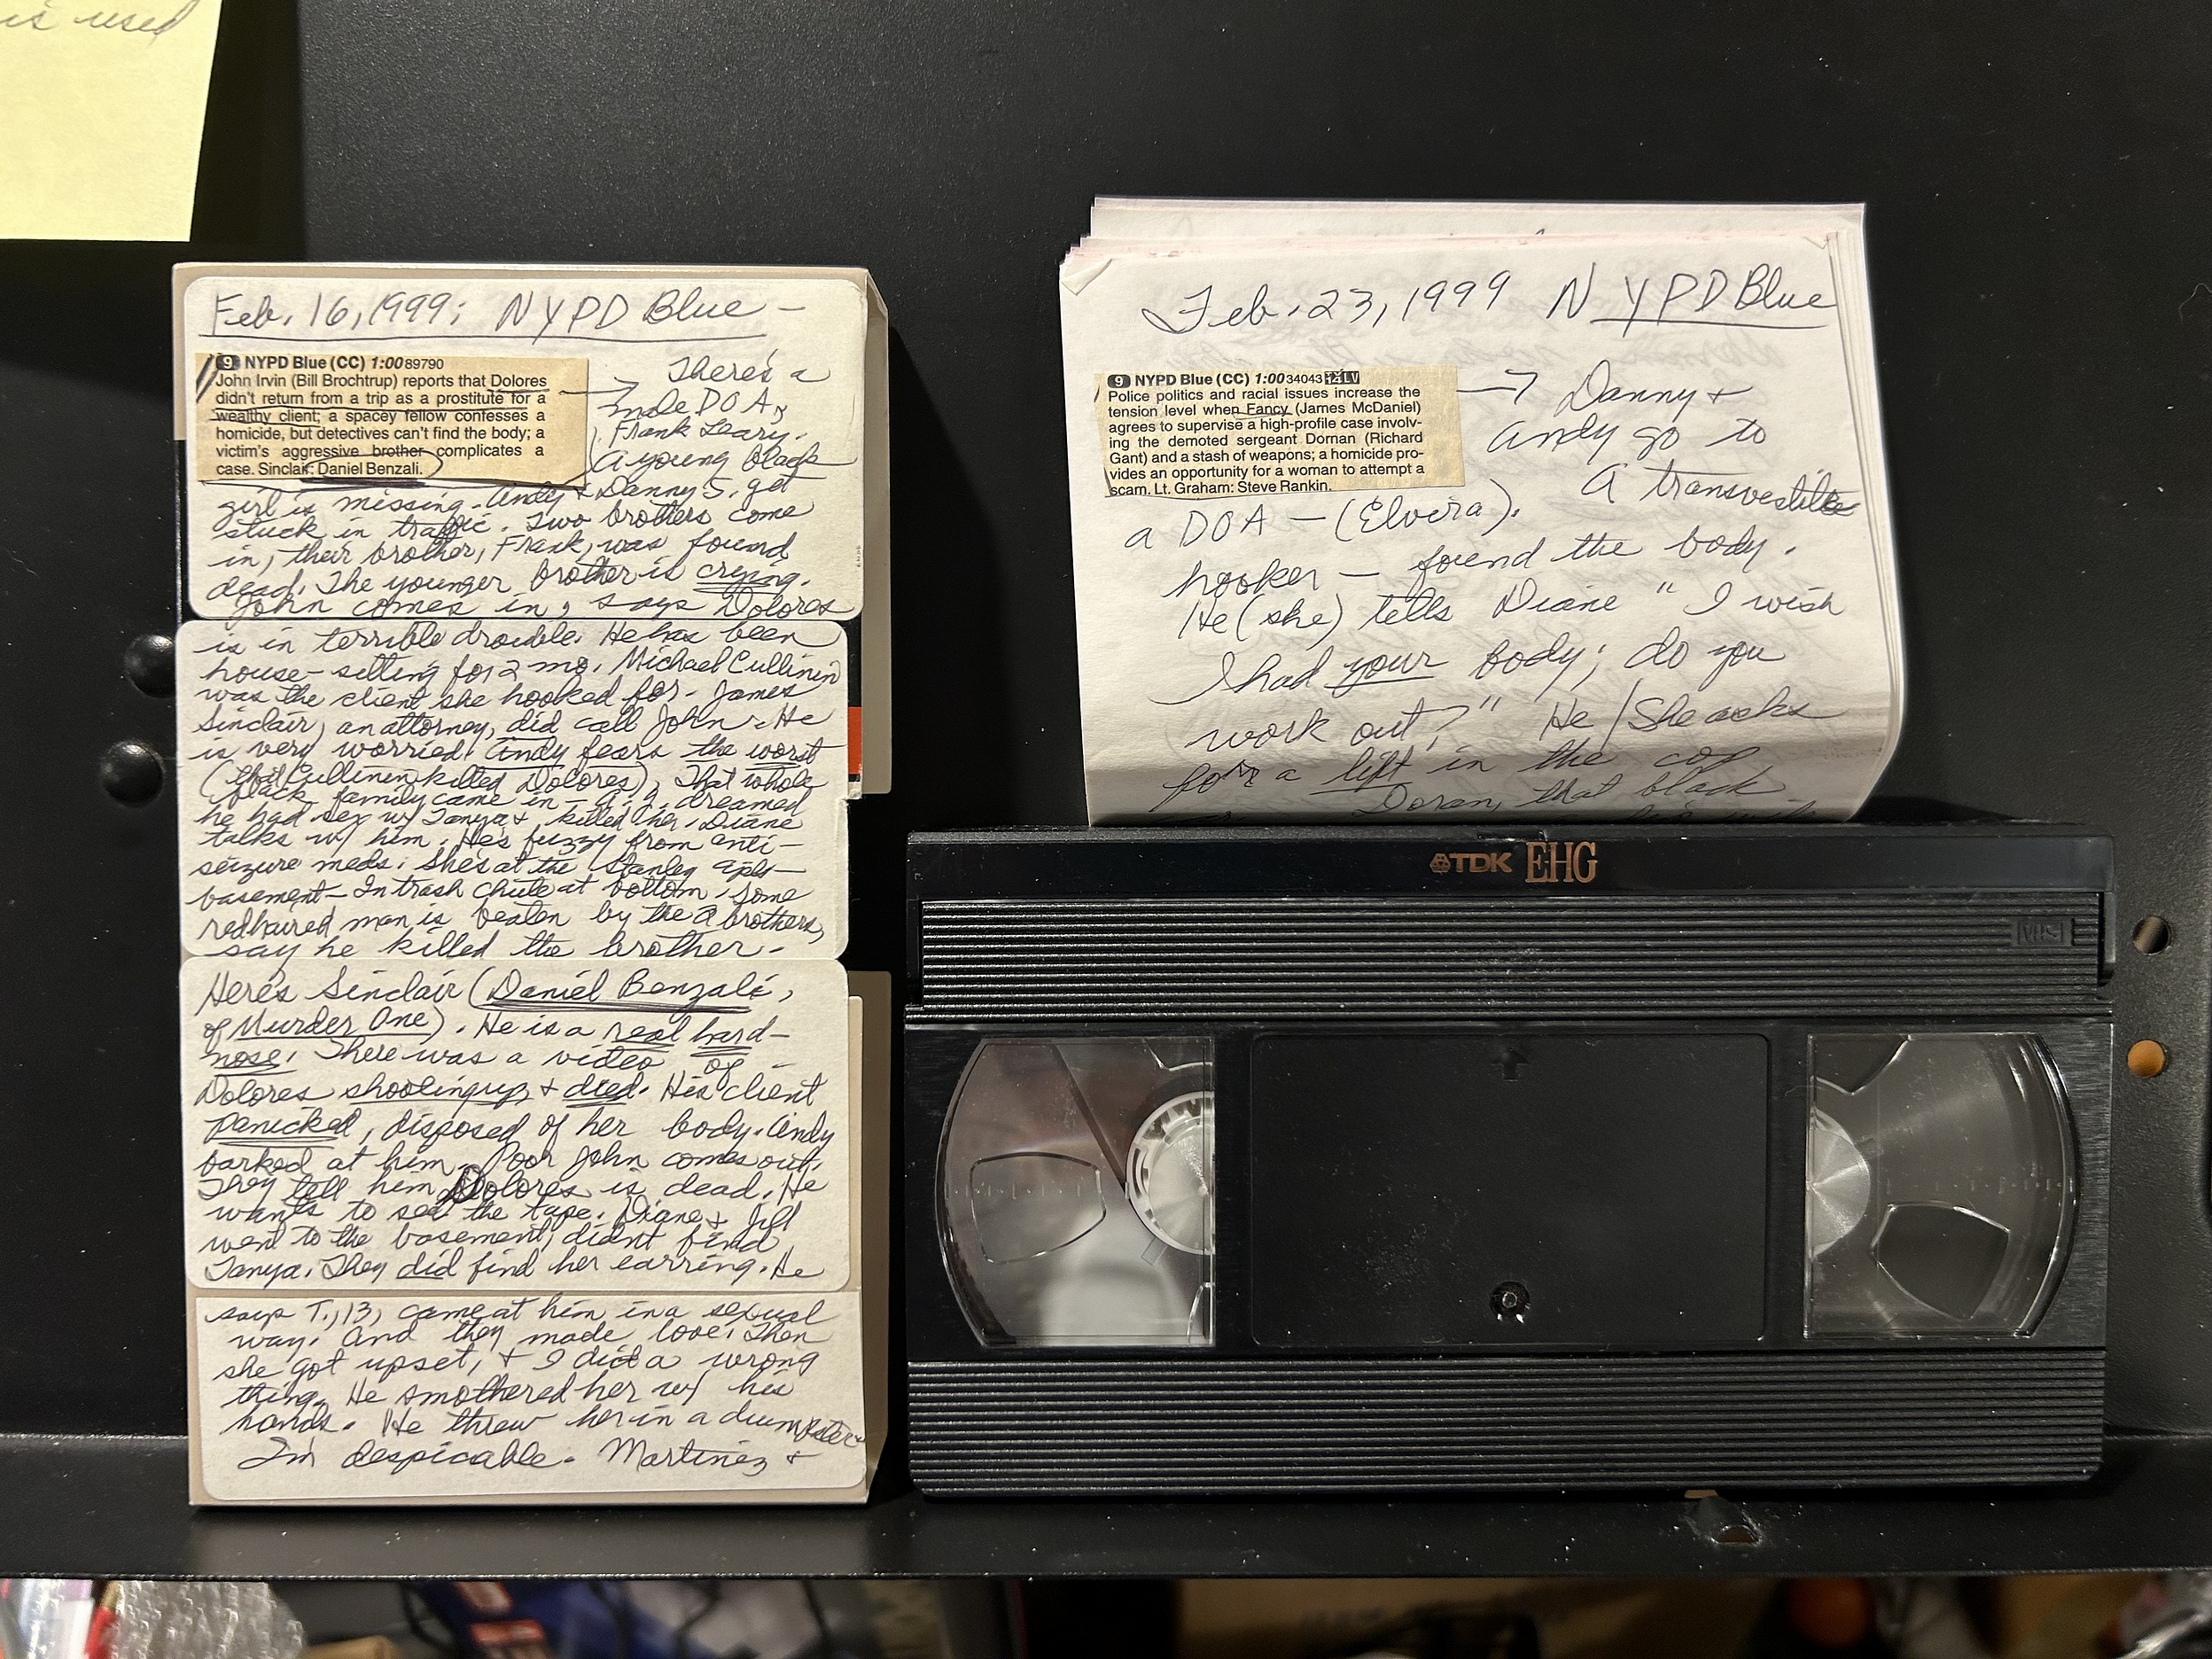 is used
Feb. 16, 1999: NYPD Blue -
9 NYPD Blue (CC) 1:00 89790
John Irvin (Bill Brochtrup) reports that Dolores
didn't return from a trip as a prostitute for a
wealthy client; a spacey fellow confesses a
homicide, but detectives can't find the body; a
victim's aggressive brother complicates a
case. Sinclair: Daniel Benzali.
There's a
male DOA,
Frank Leary.
A young black
girl is missing. Andy & Danny S. get
stuck in traffic. Two brothers come
in, their brother, Frank, was found
dead. The younger brother is crying.
John comes in, says Dolores
is in terrible trouble. He has been
house-sitting for 2 mo. Michael Cullinen
was the client she hooked for. James
Sinclair, an attorney, did call John. He
is very worried. Andy fears the worst
(that Cullinen killed Dolores). That whole
black family came in - dreamed
he had sex w/ Tanya & killed her. Diane
talks w/ him. He's fuzzy from anti-
seizure meds. She's at the Stanley apts
basement - In trash chute at bottom. Some
redhaired man is beaten by the 2 brothers,
say he killed the brother -
Here's Sinclair (Daniel Benzali,
of Murder One). He is a real hard-
nose. There was a video of
Dolores shooting up & died. His client
panicked, disposed of her body. Andy
barked at him. Poor John comes out.
They tell him Dolores is dead. He
wants to see the tape. Diane & Jill
went to the basement, didnt find
Tanya. They did find her earring. He
says T., 13, came at him in a sexual
way. And they made love. Then
she got upset, & I did a wrong
thing. He smothered her w/ his
hands. He threw her in a dumpster
I'm despicable. Martinez &
Feb. 23, 1999 NYPD Blue
9 NYPD Blue (CC) 1:00 34043 14 LV
Police politics and racial issues increase the
tension level when Fancy (James McDaniel)
agrees to supervise a high-profile case involv-
ing the demoted sergeant Dornan (Richard
Gant) and a stash of weapons; a homicide pro-
vides an opportunity for a woman to attempt a
scam. Lt. Graham: Steve Rankin.
Danny &
Andy go to
a DOA - (Elvira). A transvestite
hooker - found the body.
He (she) tells Diane "I wish
I had your body; do you
work out?" He/She asks
for a lift in the cop
Doran, that black
TDK EHG
VHS